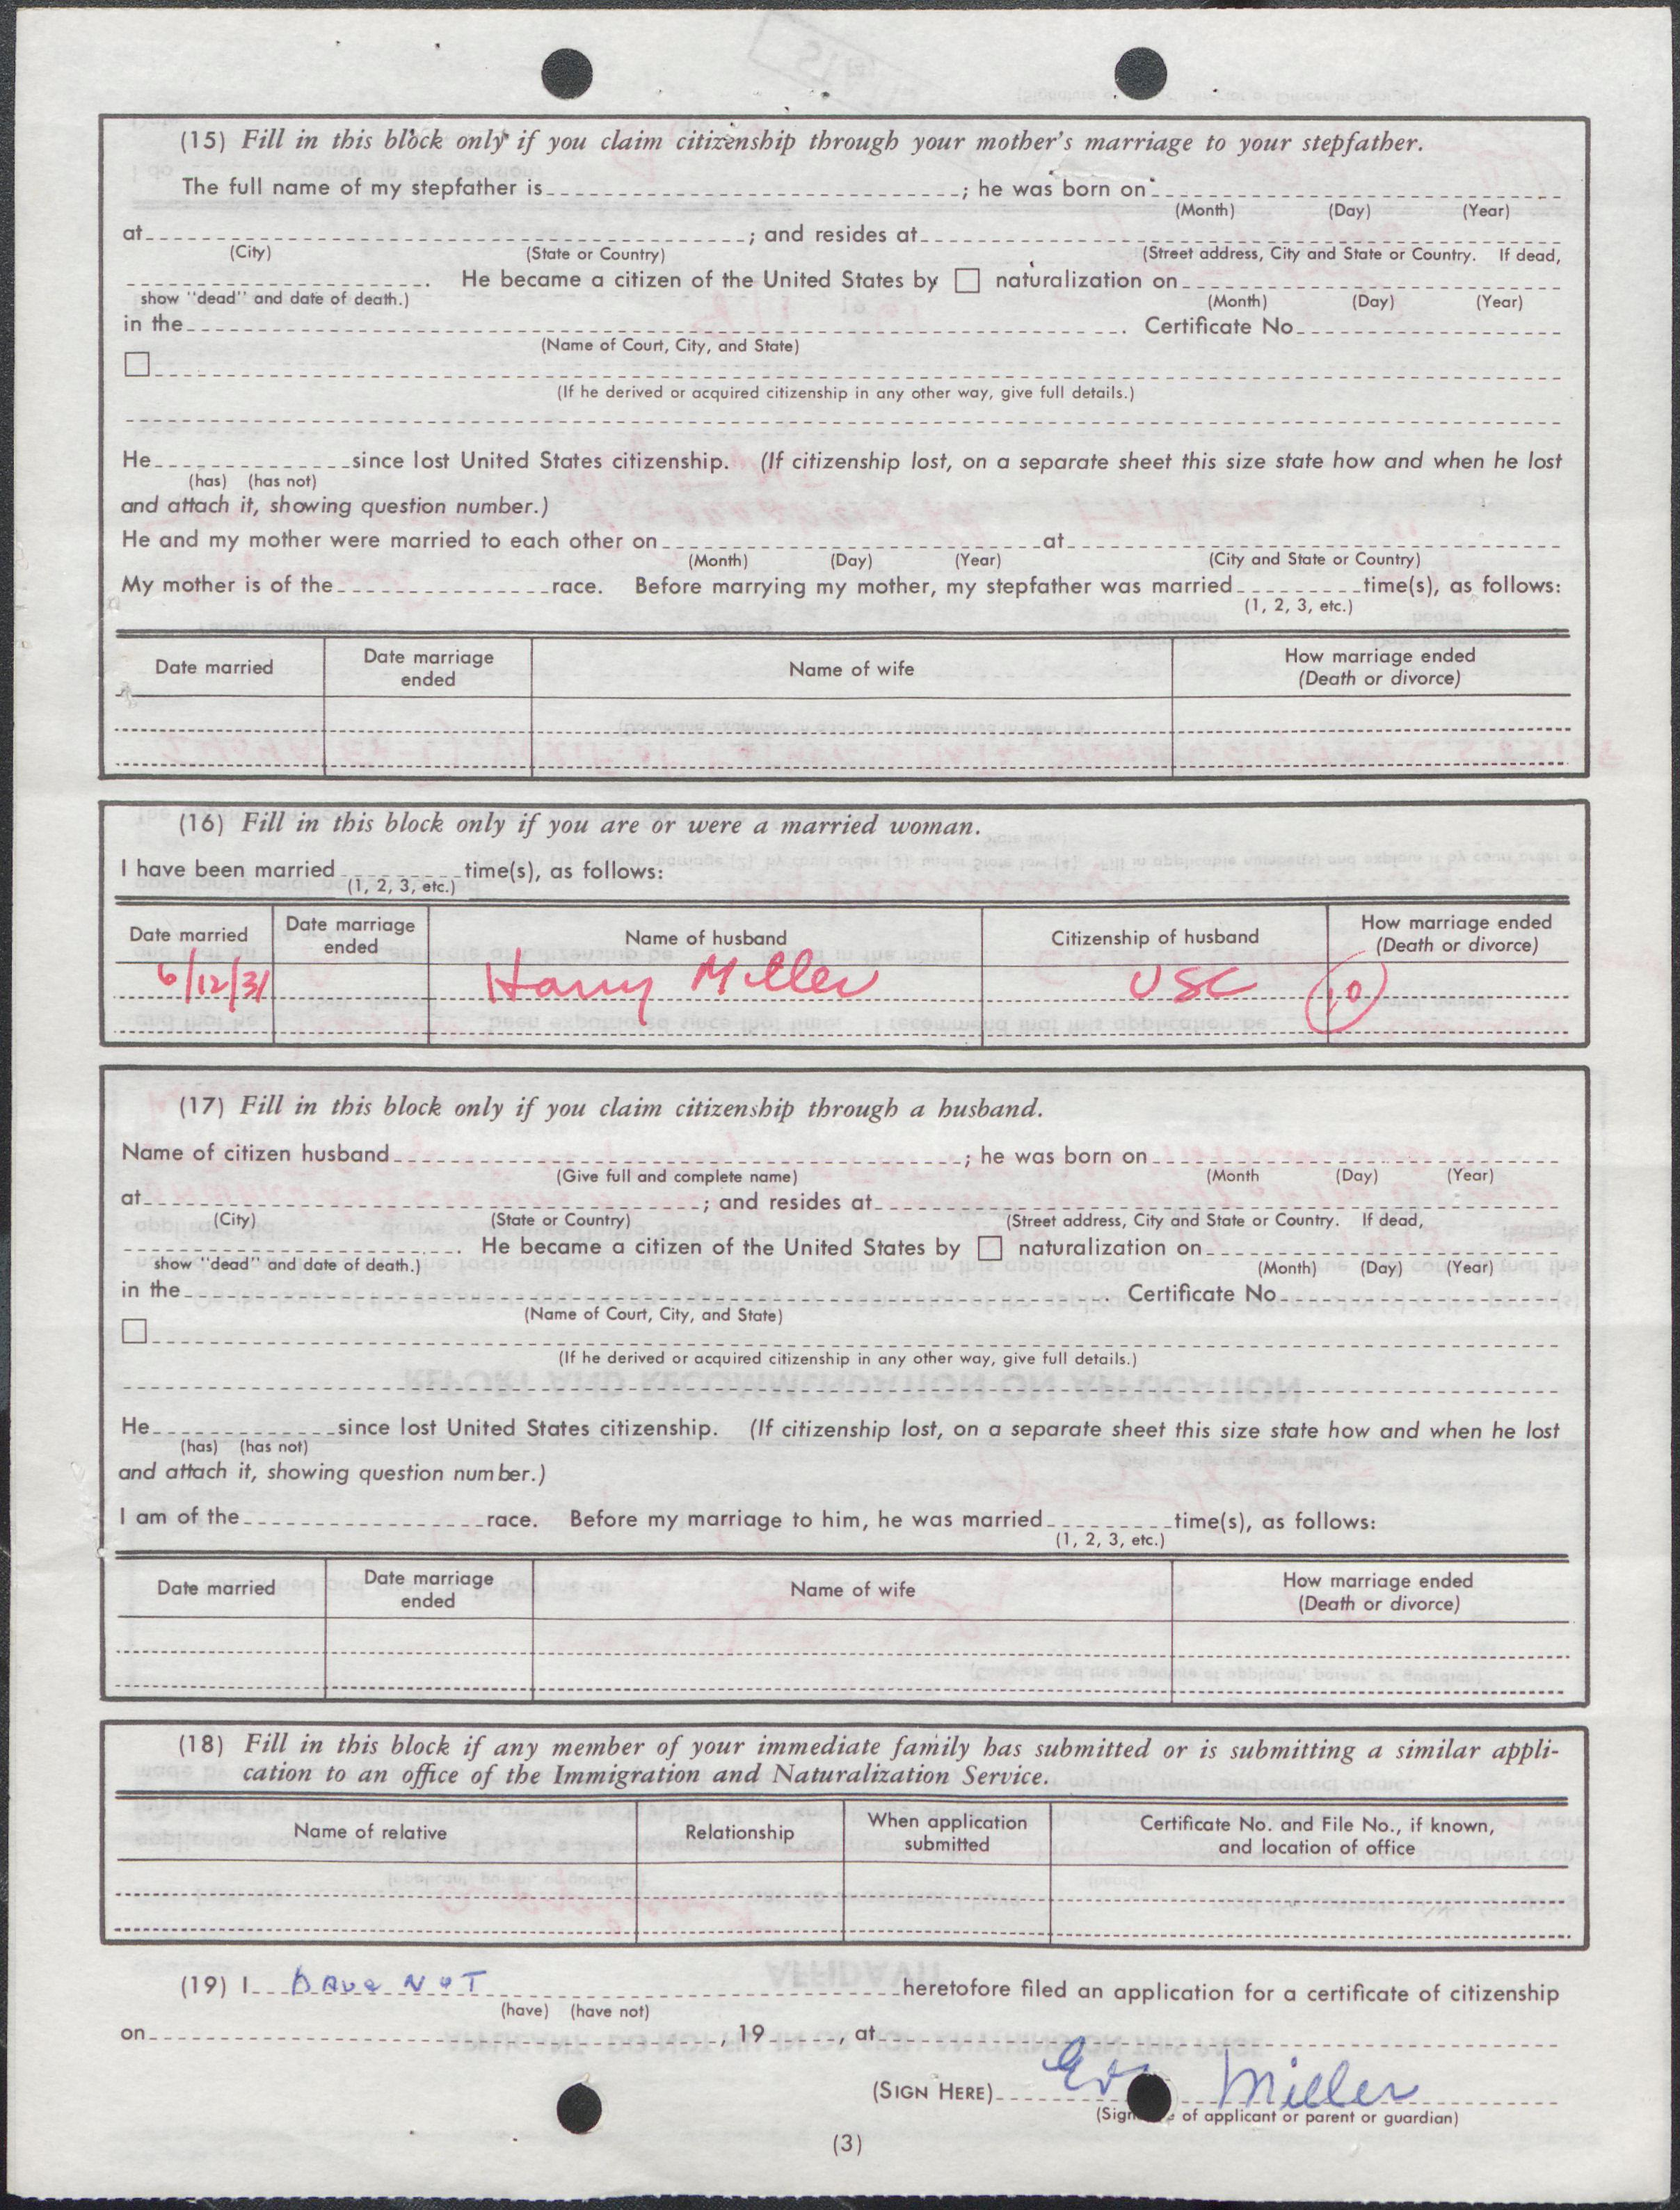 (15) Fill in this block only if you claim citizenship through your mother's marriage to your stepfather.
The full name of my stepfather is ; he was born on
(Month) (Day) (Year)
at ; and resides at
(City) (State or Country) (Street address, City and State or Country. If dead,
. He became a citizen of the United States by ☐ naturalization on
show "dead" and date of death.) (Month) (Day) (Year)
in the . Certificate No.
(Name of Court, City, and State)
☐
(If he derived or acquired citizenship in any other way, give full details.)
He since lost United States citizenship. (If citizenship lost, on a separate sheet this size state how and when he lost
(has) (has not)
and attach it, showing question number.)
He and my mother were married to each other on at
(Month) (Day) (Year) (City and State or Country)
My mother is of the race. Before marrying my mother, my stepfather was married time(s), as follows:
(1, 2, 3, etc.)
Date married Date marriage ended Name of wife How marriage ended (Death or divorce)
(16) Fill in this block only if you are or were a married woman.
I have been married time(s), as follows:
(1, 2, 3, etc.)
Date married Date marriage ended Name of husband Citizenship of husband How marriage ended (Death or divorce)
6/12/31 Harry Miller USC 10
(17) Fill in this block only if you claim citizenship through a husband.
Name of citizen husband ; he was born on
(Give full and complete name) (Month (Day) (Year)
at ; and resides at
(City) (State or Country) (Street address, City and State or Country. If dead,
. He became a citizen of the United States by ☐ naturalization on
show "dead" and date of death.) (Month) (Day) (Year)
in the . Certificate No.
(Name of Court, City, and State)
☐
(If he derived or acquired citizenship in any other way, give full details.)
He since lost United States citizenship. (If citizenship lost, on a separate sheet this size state how and when he lost
(has) (has not)
and attach it, showing question number.)
I am of the race. Before my marriage to him, he was married time(s), as follows:
(1, 2, 3, etc.)
Date married Date marriage ended Name of wife How marriage ended (Death or divorce)
(18) Fill in this block if any member of your immediate family has submitted or is submitting a similar appli-
cation to an office of the Immigration and Naturalization Service.
Name of relative Relationship When application submitted Certificate No. and File No., if known, and location of office
(19) I have NOT heretofore filed an application for a certificate of citizenship
(have) (have not)
on , 19 , at
(SIGN HERE) Miller
(Sign e of applicant or parent or guardian)
(3)